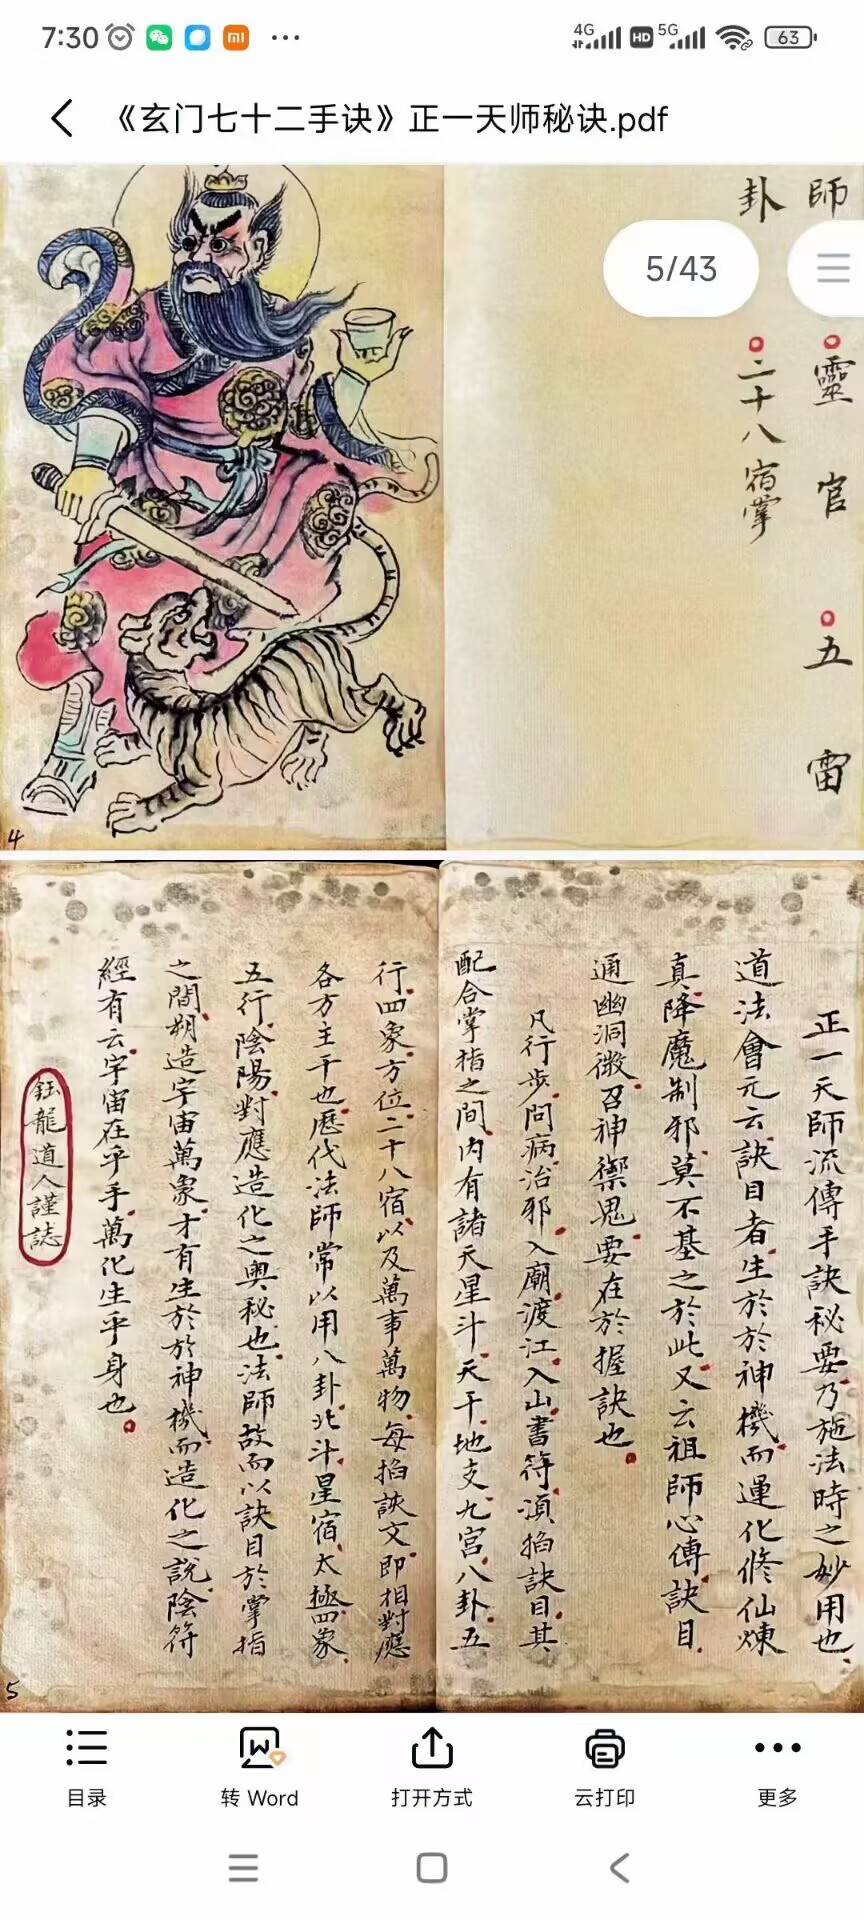 7:30
4G
HD
5G
63
《玄门七十二手诀》正一天师秘诀.pdf
5/43
師 靈官 五雷
卦 二十八宿掌
4
正一天師流傳手訣秘要乃施法時之妙用也
道法會元云訣目者生於於神機而運化修仙煉
真降魔制邪莫不基之於此又云祖師心傳訣目
通幽洞微召神禦鬼要在於握訣也
凡行步問病治邪入廟渡江入山書符須掐訣目其
配合掌指之間內有諸天星斗天干地支九宮八卦五
行四象方位二十八宿以及萬事萬物每掐訣文即相對應
各方主干也歷代法師常以用八卦北斗星宿太極四象
五行陰陽對應造化之奧秘也法師故而以訣目於掌指
之間朔造宇宙萬象才有生於於神機而造化之說陰符
經有云宇宙在乎手萬化生乎身也
鈺龍道人謹誌
5
目录
转 Word
打开方式
云打印
更多